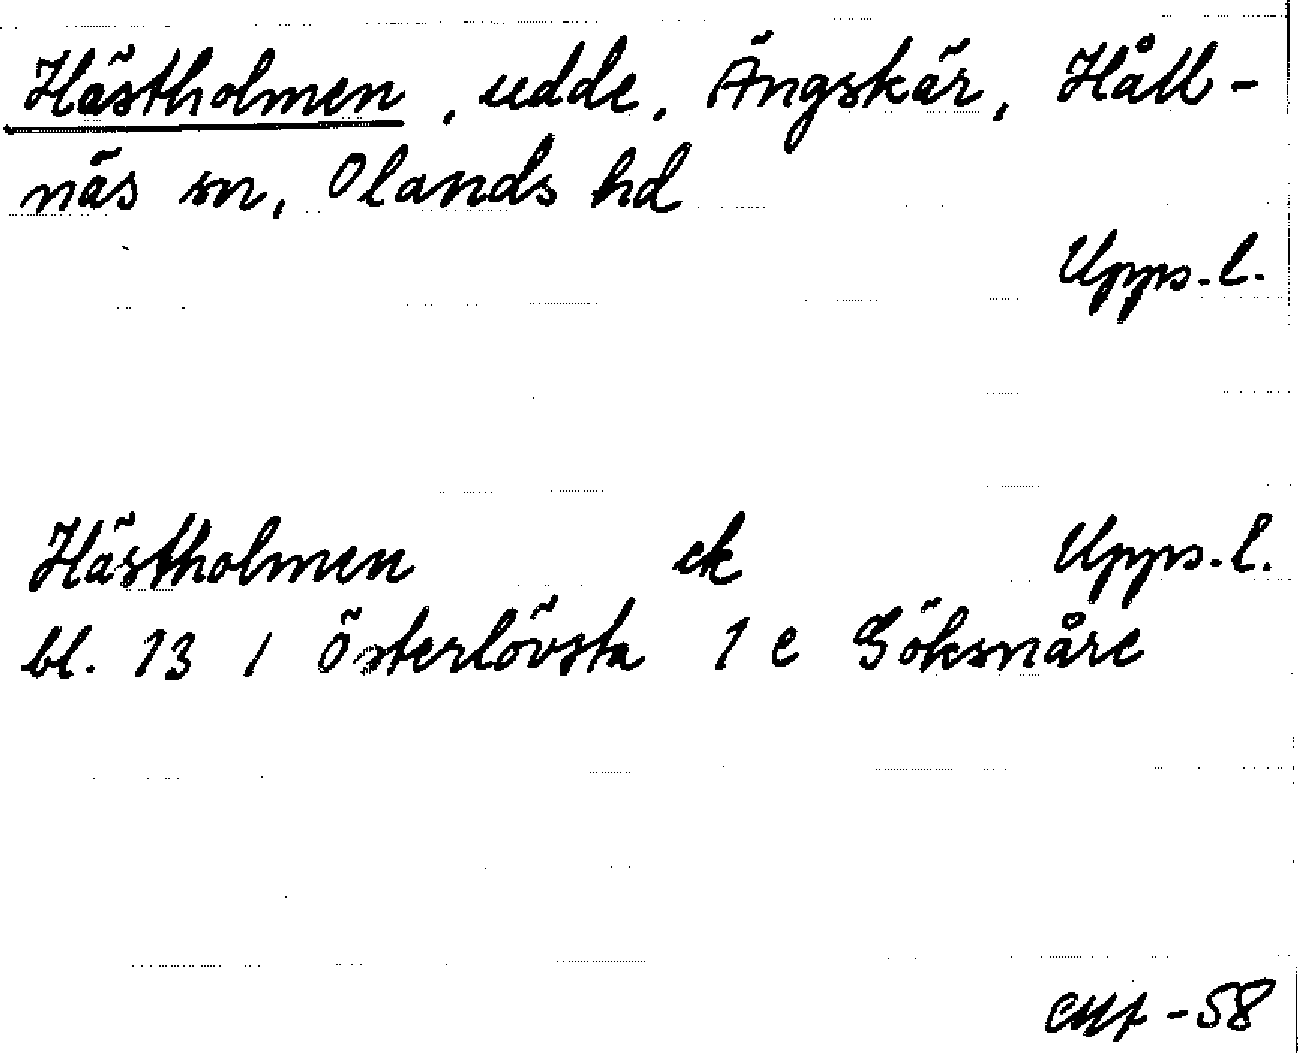 Hästholmen, udde, Ängskär, Håll-
näs sn, Olands hd
Upps.l.
Hästholmen ek Upps.l.
bl. 13 / Österlövsta 1 e Göksnåre
-58